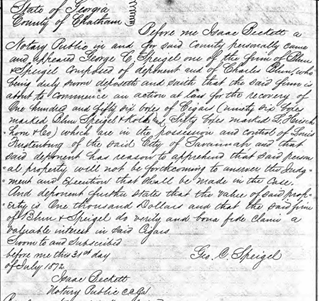 State of Georgia
County of Chatham
Before me Isaac Beckett a
Notary Public in and for said County personally came
and appeared George C. Speigel one of the firm of Blun
& Speigel composed of deponent and of Charles Blun, who
being duly sworn deposeth and saith that the said firm is
about to commence an action at law for the recovery of
One hundred and fifty six boxes of Cigars (ninety six boxes
marked Blun Speigel & , Sixty boxes marked L. Hirsch
 & Co) which are in the possession and control of Louis
 of the said City of Savannah and that
said deponent has reason to apprehend that said person
al property will not be forthcoming to answer the Judg
ment and Execution that shall be made in the case.
And deponent further states that the value of said prop
erty is One thousand Dollars and that the said firm
of Blun & Speigel do verily and bona fide claim a
valuable interest in said Cigars.
Sworn to and Subscribed
before me this 31st day
of July 1872
Geo. C. Speigel
Isaac Beckett
Notary Public C.C. Ga